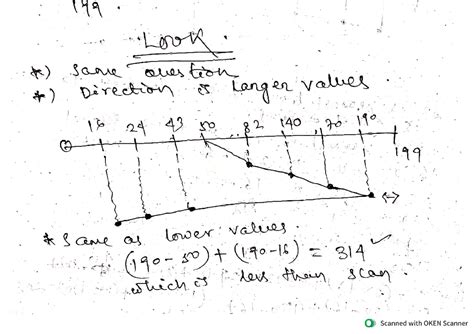 199.
Look.
*) Same question
*) Direction is Larger values.
0 16 24 43 50 82 140 170 190
199
* Same as lower values.
(190-50) + (190-16) = 314 ✓
which is less than scan.
Scanned with OKEN Scanner